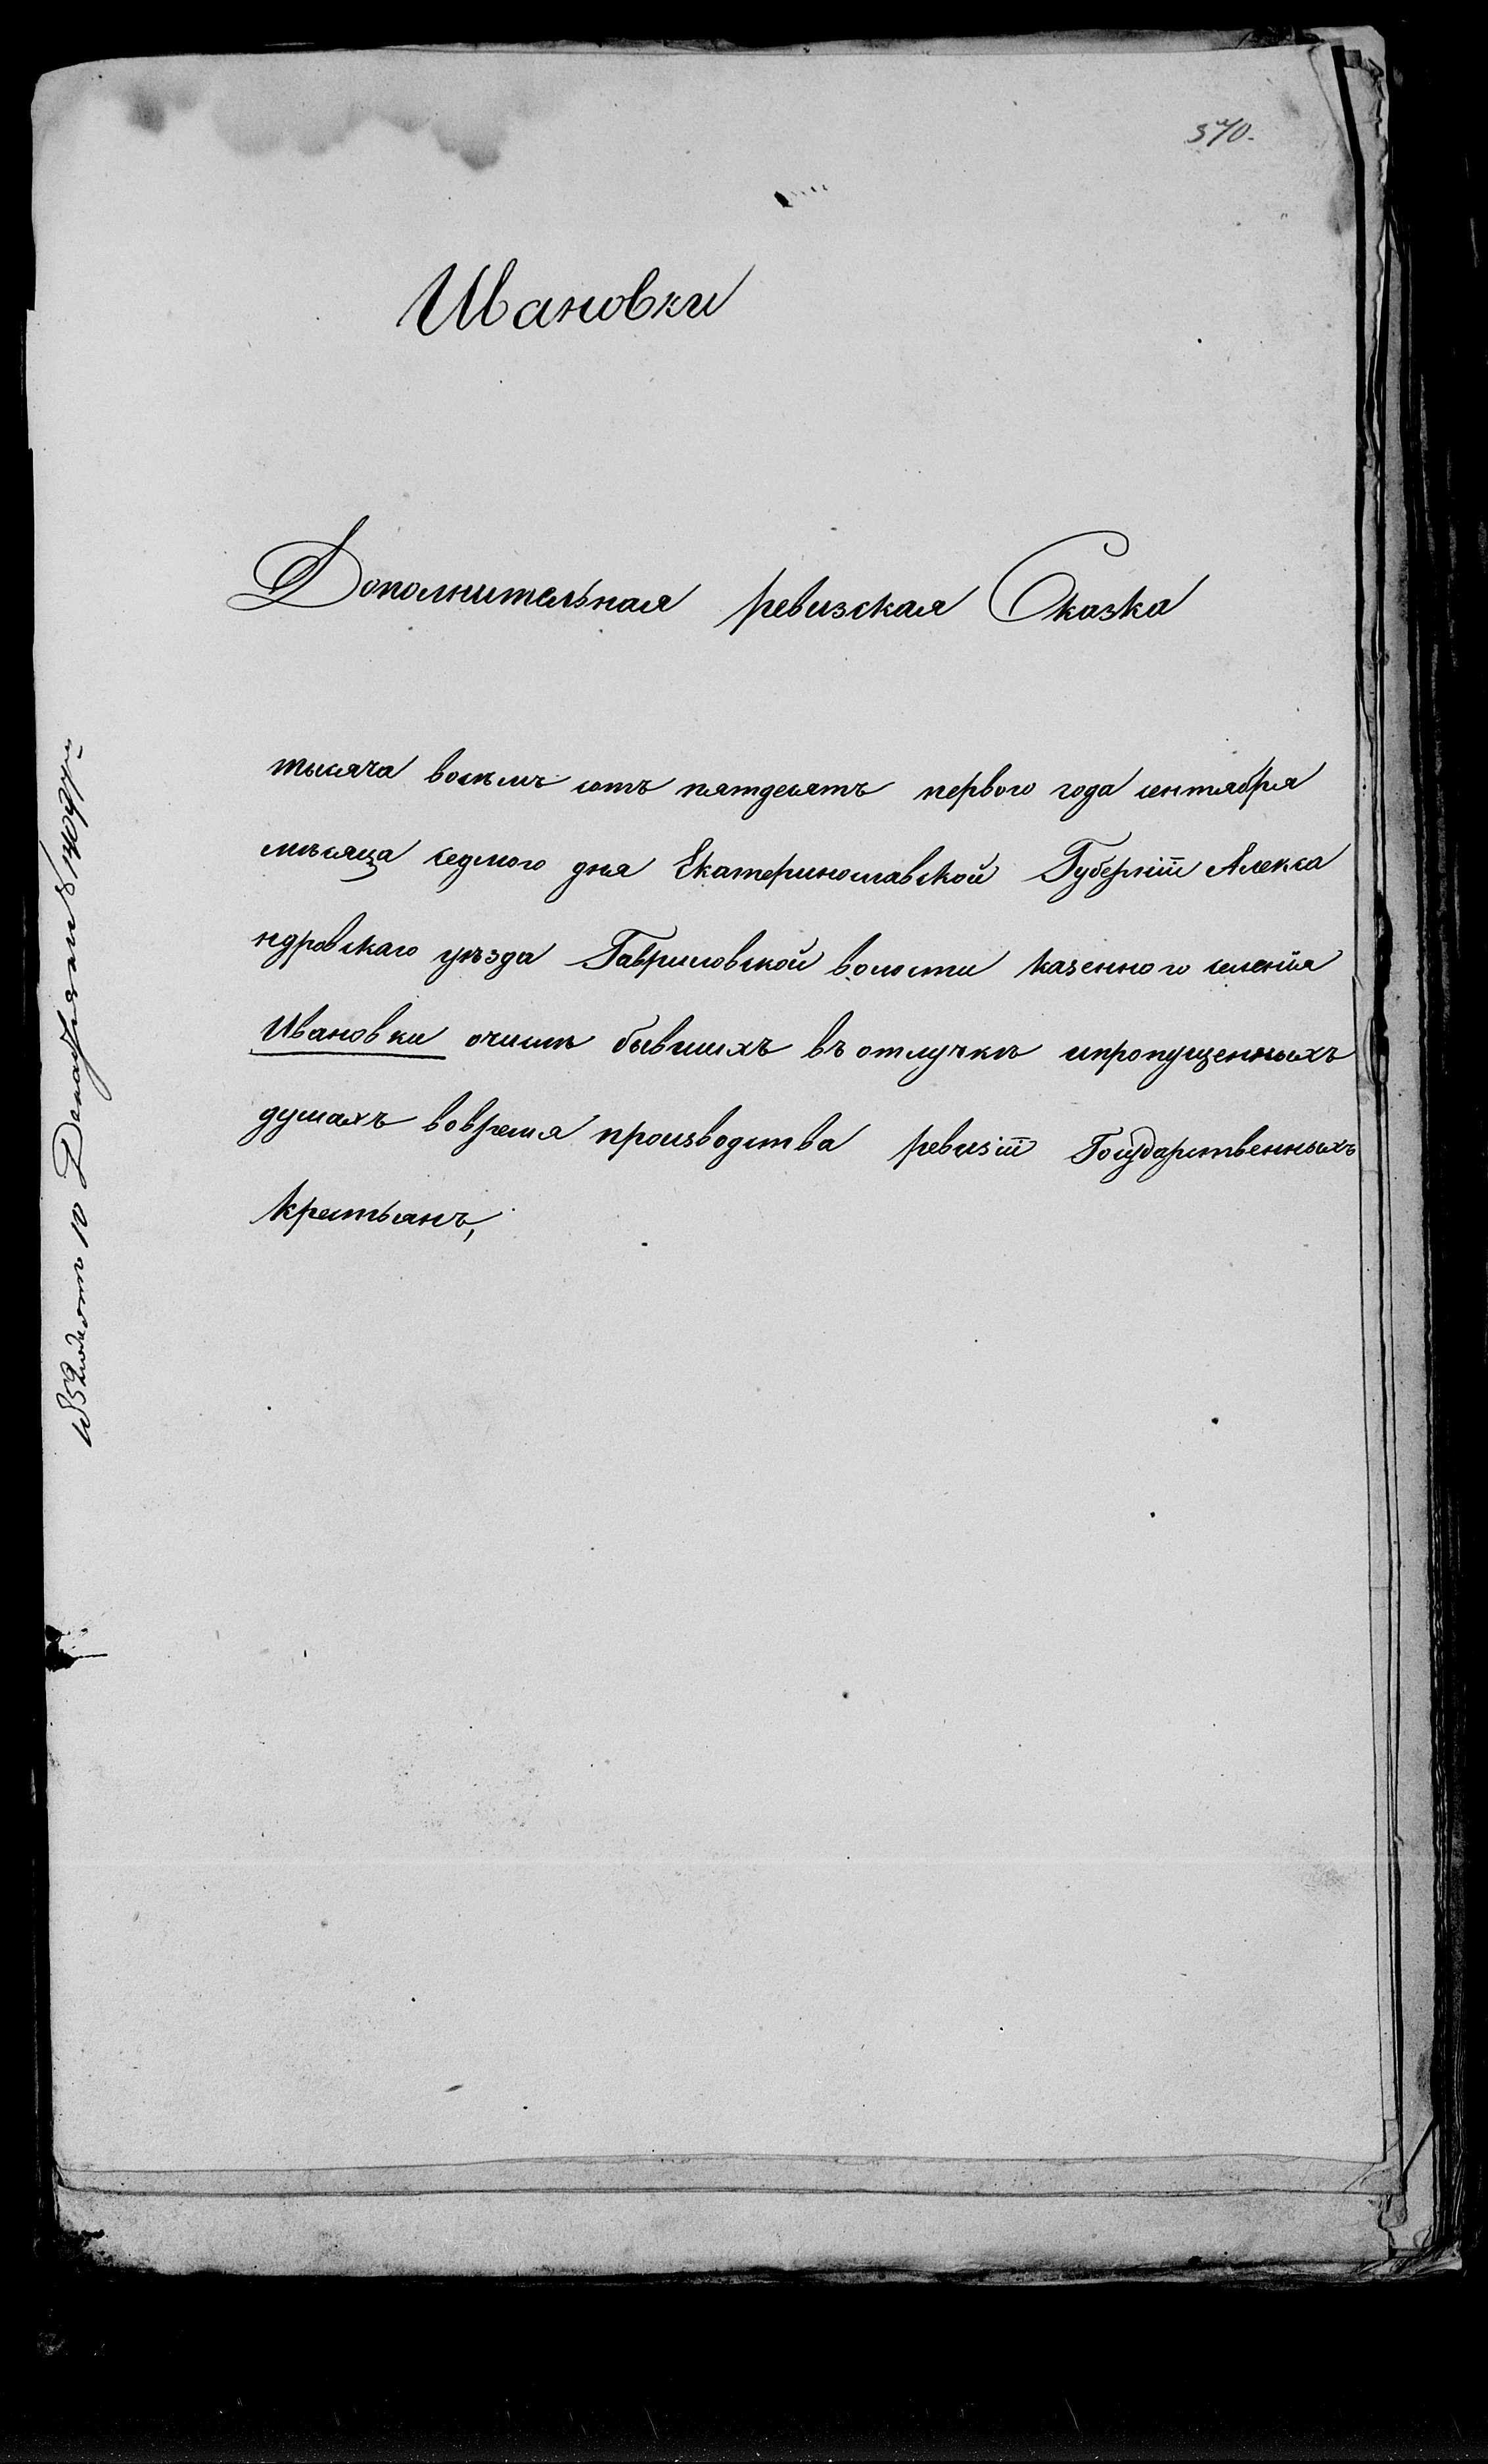 570.
Ивановки
Дополнительная ревизская Сказка
тысяча восемъ сотъ пятдесятъ первого года сентября
мѣсяца седмого дня Екатеринославской Губерніи Алекса
ндровскаго уѣзда Гавриловской волости казенного селенія
Ивановки очислѣ бывшихъ въ отлучкѣ ипропущенныхъ
душахъ вовремя производства ревизіи Государственныхъ
крестьянъ,
10 Декабря